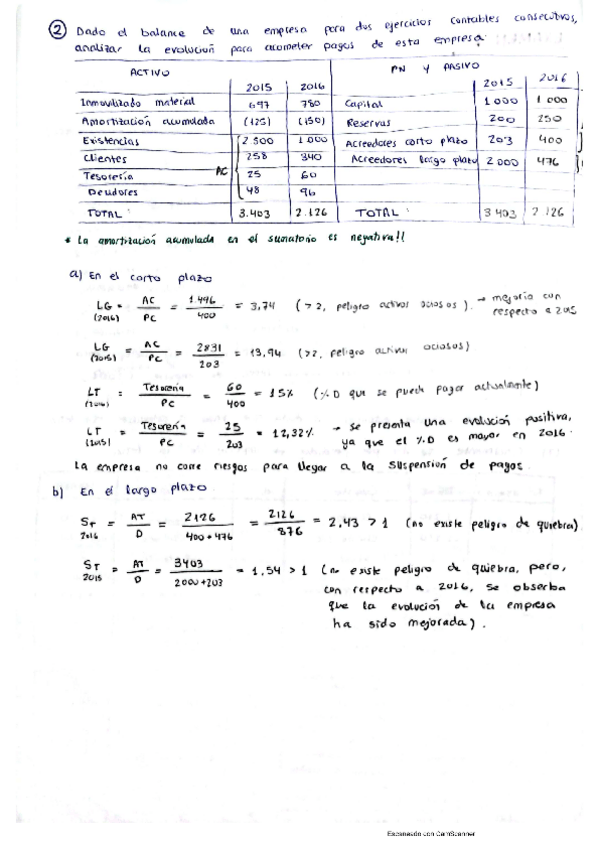 ② Dado el balance de una empresa para dos ejercicios contables consecutivos,
analizar la evolución para acometer pagos de esta empresa.
ACTIVO PN y PASIVO
2015 2016 2015 2016
Inmovilizado material 697 780 Capital 1 000 1 000
Amortización acumulada (125) (150) Reservas 200 250
Existencias 2.500 1.000 Acreedores corto plazo 203 400
Clientes 258 340 Acreedores largo plazo 2 000 476
AC
Tesorería 25 60
Deudores 48 96
TOTAL 3.403 2.126 TOTAL: 3 403 2.126
* La amortización acumulada en el sumatorio es negativa!!
a) En el corto plazo
LG (2016) = AC / PC = 1.496 / 400 = 3,74 (>2, peligro activos ociosos). → mejoría con respecto a 2015
LG (2015) = AC / PC = 2831 / 203 = 13,94 (>2, peligro activos ociosos)
LT (2016) = Tesorería / PC = 60 / 400 = 15% (%D que se puede pagar actualmente)
LT (2015) = Tesorería / PC = 25 / 203 = 12,32% → se presenta una evolución positiva,
ya que el %D es mayor en 2016.
La empresa no corre riesgos para llegar a la suspensión de pagos.
b) En el largo plazo.
ST 2016 = AT / D = 2126 / 400+476 = 2126 / 876 = 2,43 > 1 (no existe peligro de quiebra)
ST 2015 = AT / D = 3403 / 2000+203 = 1,54 > 1 (no existe peligro de quiebra, pero,
con respecto a 2016, se observa
que la evolución de la empresa
ha sido mejorada).
Escaneado con CamScanner